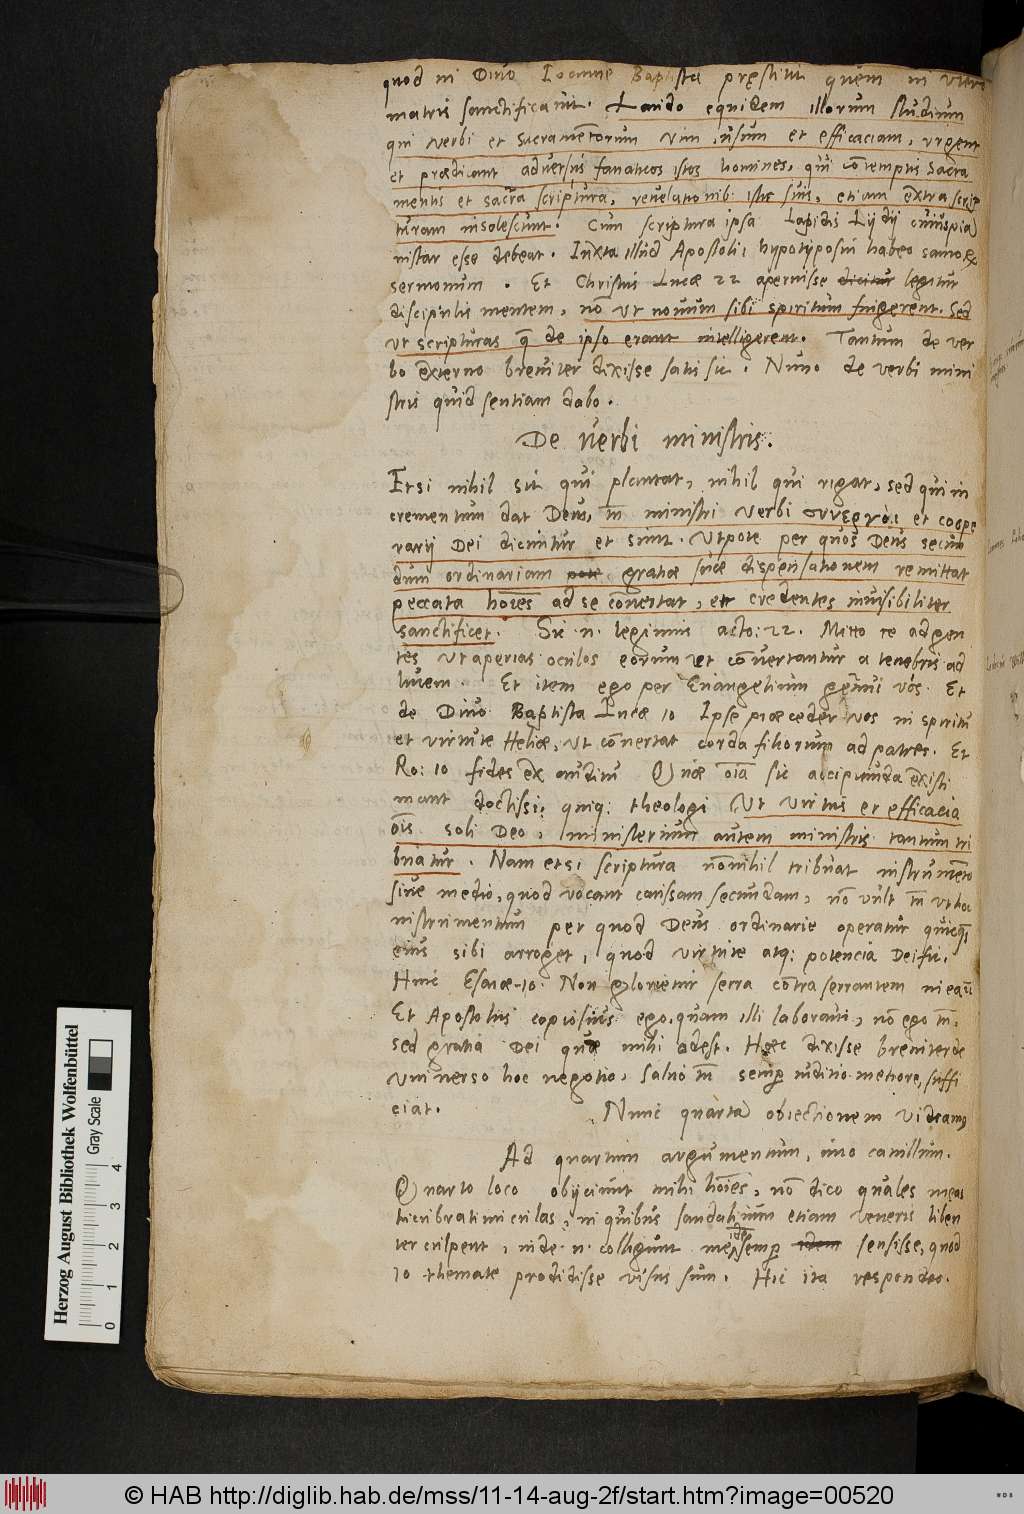 quod in Divo Ioanne Baptista pręstitit quem in utero
matris sanctificavit. Laudo equidem illorum studium
qui verbi et Sacramentorum vim, usum et efficaciam, urgent
et prædicant adversus fanaticos istos homines, qui cōtemptis sacra
mentis et sacra scriptura, revelationib. istis suis, etiam extra scrip
turam insolescunt. Cum scriptura ipsa Lapidis Lijdij cuiuspiā
instar esse debeat. Iuxta illud Apostoli, hypotyposin habeo sanorū
sermonum. Et Christus Lucæ 22 aperuisse dicitur legitur
discipulis mentem, nō ut novum sibi spiritum fingerent. Sed
ut scripturas q̄ de ipso erant intelligerent. Tantum de ver
bo externo breviter dixisse satis sit. Nunc de verbi mini
stris quid sentiam dabo.
De verbi ministris.
Etsi nihil sit qui plantat, nihil qui rigat, sed qui in
crementum dat Deus, tn̄ ministri verbi συνεργοὶ et coope
rarij Dei dicuntur et sunt. Utpote per quos Deus secun
dum ordinariam pote gratiæ suæ dispensationem remittat
peccata hoīes ad se cōvertat, et credentes invisibiliter
sanctificet. Sic .n. legimus acto: 22. Mitto te ad gen
tes ut aperias oculos eorum ut cōvertantur a tenebris ad
lucem. Et item ego per Evangelium genui vos. Et
de Divo Baptista Lucæ 10 Ipse præcedet vos in spiritu
et virtute Heliæ, ut cōvertat corda filiorum ad patres. Et
Ro: 10 fides ex auditu Quæ oīa sic accipienda existi
mant doctissi: quiq: theologi Ut virtus et efficacia
oīs soli Deo, ministerium autem ministris tantum tri
buatur. Nam etsi scriptura nōnihil tribuat instrumēto
sive medio, quod vocant causam secundam, nō vult tn̄ ut hoc
instrumentum per quod Deus ordinarie operatur quicq̄
eius sibi arroget, quod virtute atq: potencia Dei fit.
Huic Esaiæ .10. Non glorietur serra cōtra serrantem in ea
Et Apostolus copiosius ego, quam illi laboravi, nō ego tn̄,
sed gratia Dei quæ mihi adest. Hæc dixisse breviter de
universo hoc negotio, salvo tn̄ semp iuditio meliore, suffi
ciat. Nunc quarta obiectionem videamꝰ
Ad quartum argumentum, imo cavillum.
Quarto loco obijciunt mihi hoīes, nō dico quales meas
lucubratiunculas, in quibus sandalium etiam Veneris liben
ter culpent, inde .n. colligunt me idē semp idem sensisse, quod
10 themate prodidisse visus sum. Hic ita respondeo.
Herzog August Bibliothek Wolfenbüttel
Gray Scale
0 1 2 3 4
© HAB http://diglib.hab.de/mss/11-14-aug-2f/start.htm?image=00520